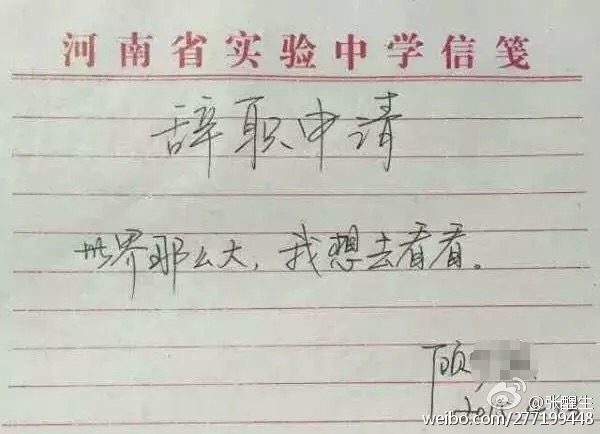 河南省实验中学信笺
辞职申请
世界那么大，我想去看看。
顾
2015
@张醒生
weibo.com/277199448